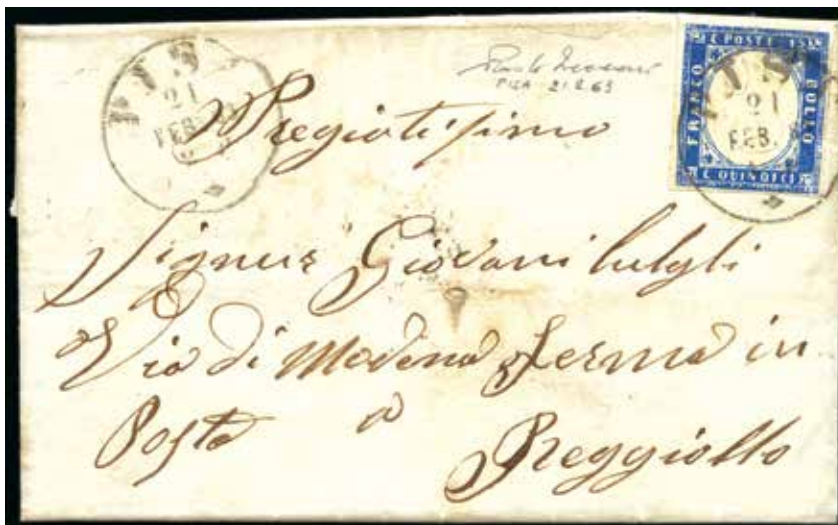 PISA
21
FEB. 63
PISA 21.2.63
C. POSTE 15
FRANCO
BOLLO
C. QUINDICI
PISA
21
FEB. 63
Pregiatissimo
Signor Giovani
Via di Modena ferma in
Posta a Reggiollo